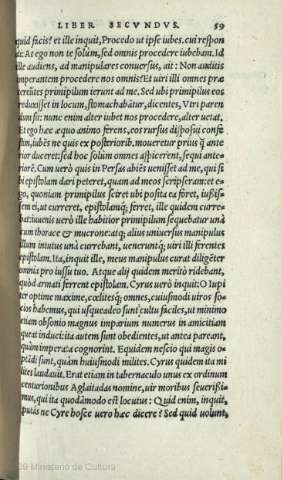 LIBER SECVNDVS. 59
quid facis? et ille inquit, Procedo ut ipse iubes. cui respon
de: At ego non te solùm, sed omnis procedere iubebam. Id
ille audiens, ad manipulares conuersus, ait: Non auditis
imperantem procedere nos omnis? Et uiri illi omnes præ
tereũtes primipilum ierunt ad me. Sed ubi primipilus eos
reduxisset in locum, stomachabãtur, dicentes, Vtri paren
dum sit: nunc enim alter iubet nos procedere, alter uetat.
Et ego hæc æquo animo ferens, eos rursus disposui confe
stim, iubẽs ne quis ex posteriorib. moueretur prius q̃ ante
rior duceret: sed hoc solùm omnes aspicerent, sequi ante-
riorẽ. Cum uerò quis in Persas abiẽs uenisset ad me, qui si
bi epistolam dari peteret, quam ad meos scripseram: et e-
go, quoniam primipilus sciret ubi posita ea foret, iußis-
sem ei, ut curreret, epistolamq; ferret, ille quidem curre-
bat: iuuenis uerò ille habitior primipilum sequebatur unà
cum thorace & mucrone: atq; alius uniuersus manipulus
illum intuitus unà currebant, ueneruntq; uiri illi ferentes
epistolam. Ita, inquit ille, meus manipulus curat diligẽter
omnia pro iussu tuo. Atque alij quidem meritò ridebant,
quòd armati ferrent epistolam. Cyrus uerò inquit: O Iupi
ter optime maxime, cœlitesq; omnes, cuiusmodi uiros so-
cios habemus, qui usqueadeo sunt cultu faciles, ut minimo
etiam obsonio magnus imparium numerus in amicitiam
queat induci: ita autem sunt obedientes, ut antea pareant,
quàm imperata cognorint. Equidem nescio qui magis o-
ptãdi sunt, quàm huiusmodi milites. Cyrus quidem ita mi
lites laudauit. Erat etiam in tabernaculo unus ex ordinum
centurionibus Aglaitadas nomine, uir moribus seuerißi-
mus, qui ita quodãmodo est locutus: Quid enim, inquit,
putás ne Cyre hosce uero hæc dicere? Sed quid uolunt,
Ministerio de Cultura